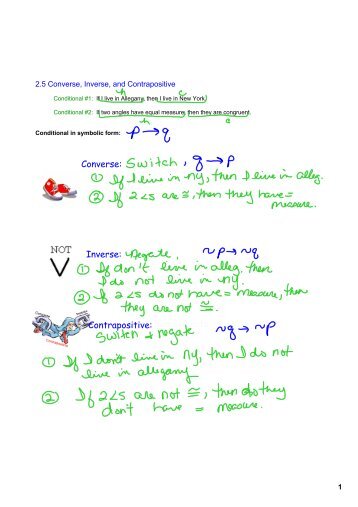 2.5 Converse, Inverse, and Contrapositive
h c
Conditional #1: If I live in Allegany, then I live in New York.
Conditional #2: If two angles have equal measure, then they are congruent.
h c
Conditional in symbolic form: p → q
Converse: Switch, q → p
① If I live in ny, then I live in alleg.
② If 2 ∠s are ≅, then they have =
measure.
NOT
V
Inverse: Negate, ~p → ~q
① If don't live in alleg. then
I do not live in ny.
② If 2 ∠s do not have = measure, then
they are not ≅.
Contrapositive: ~q → ~p
Switch + negate
① If I don't live in ny, then I do not
live in allegany
② If 2 ∠s are not ≅, then they
don't have = measure.
1